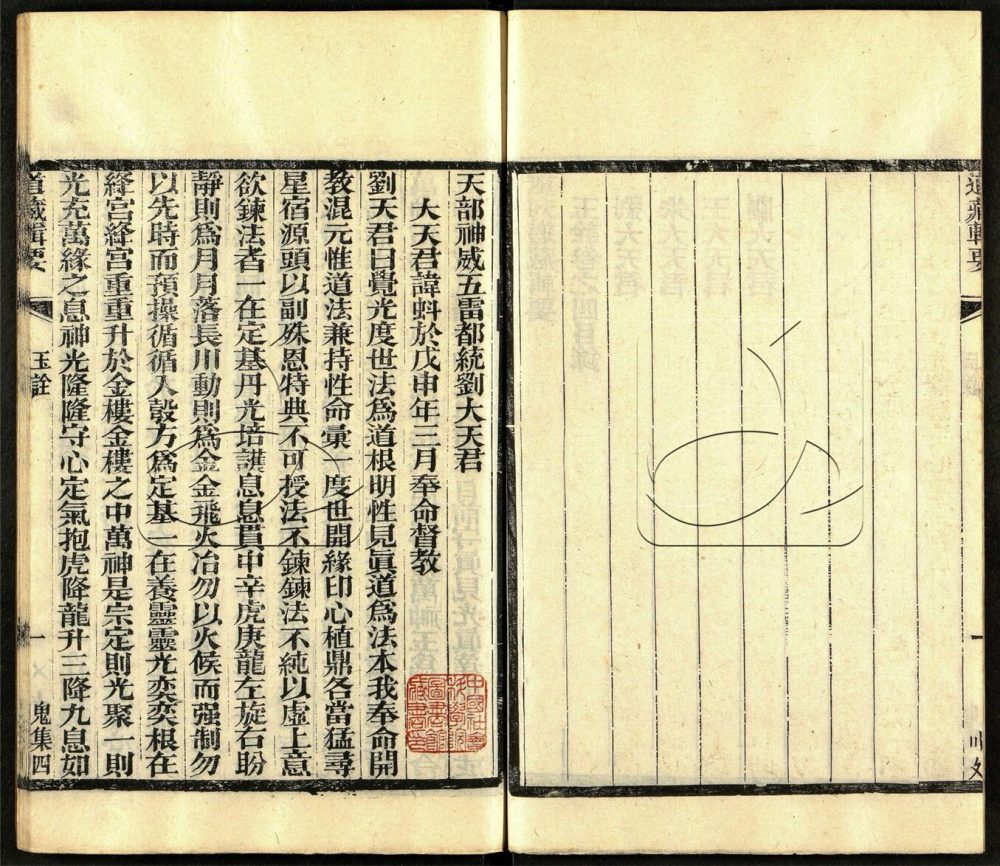 道藏輯要
天部神威五雷都統劉大天君
大天君諱蚪於戊申年三月奉命督教
劉天君曰覺光度世法爲道根明性見眞道爲法本我奉命開
教混元惟道法兼持性命彙一度世開緣印心植鼎各當猛尋
星宿源頭以副殊恩特典不可授法不鍊鍊法不純以虛上意
欲鍊法者一在定基丹光培護息息貫中辛虎庚龍左旋右盼
靜則爲月月落長川動則爲金金飛火冶勿以火候而强制勿
以先時而預操循循入彀方爲定基一在養靈靈光奕奕根在
絳宮絳宮重重升於金樓金樓之中萬神是宗定則光聚一則
光充萬緣之息神光隆隆守心定氣抱虎降龍升三降九息如
道藏輯要
玉詮
一
鬼集四